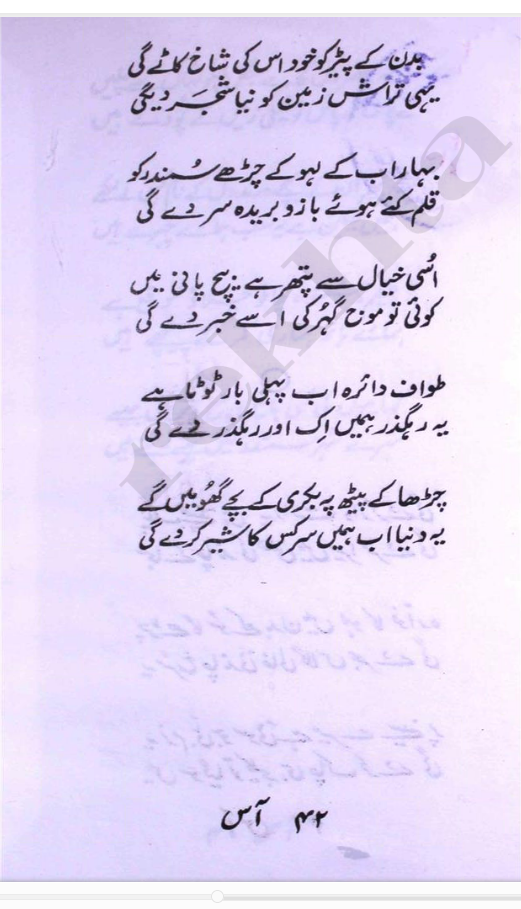 بدن کے پیڑ کو خود اس کی شاخ کاٹے گی
یہی تراش زمین کو نیا شجر دیگی
بہار اب کے لہو کے چڑھے سمندر کو
قلم کئے ہوئے بازو بریدہ سر دے گی
اسی خیال سے پتھر ہے بیچ پانی میں
کوئی تو موج گہر کی اسے خبر دے گی
طواف دائرہ اب پہلی بار ٹوٹا ہے
یہ رہگذر ہمیں اِک اور رہگذر دے گی
چڑھا کے پیٹھ پہ بکری کے بچے گھُومیں گے
یہ دنیا اب ہمیں سرکس کا شیر کر دے گی
۴۲ آس
rekhta